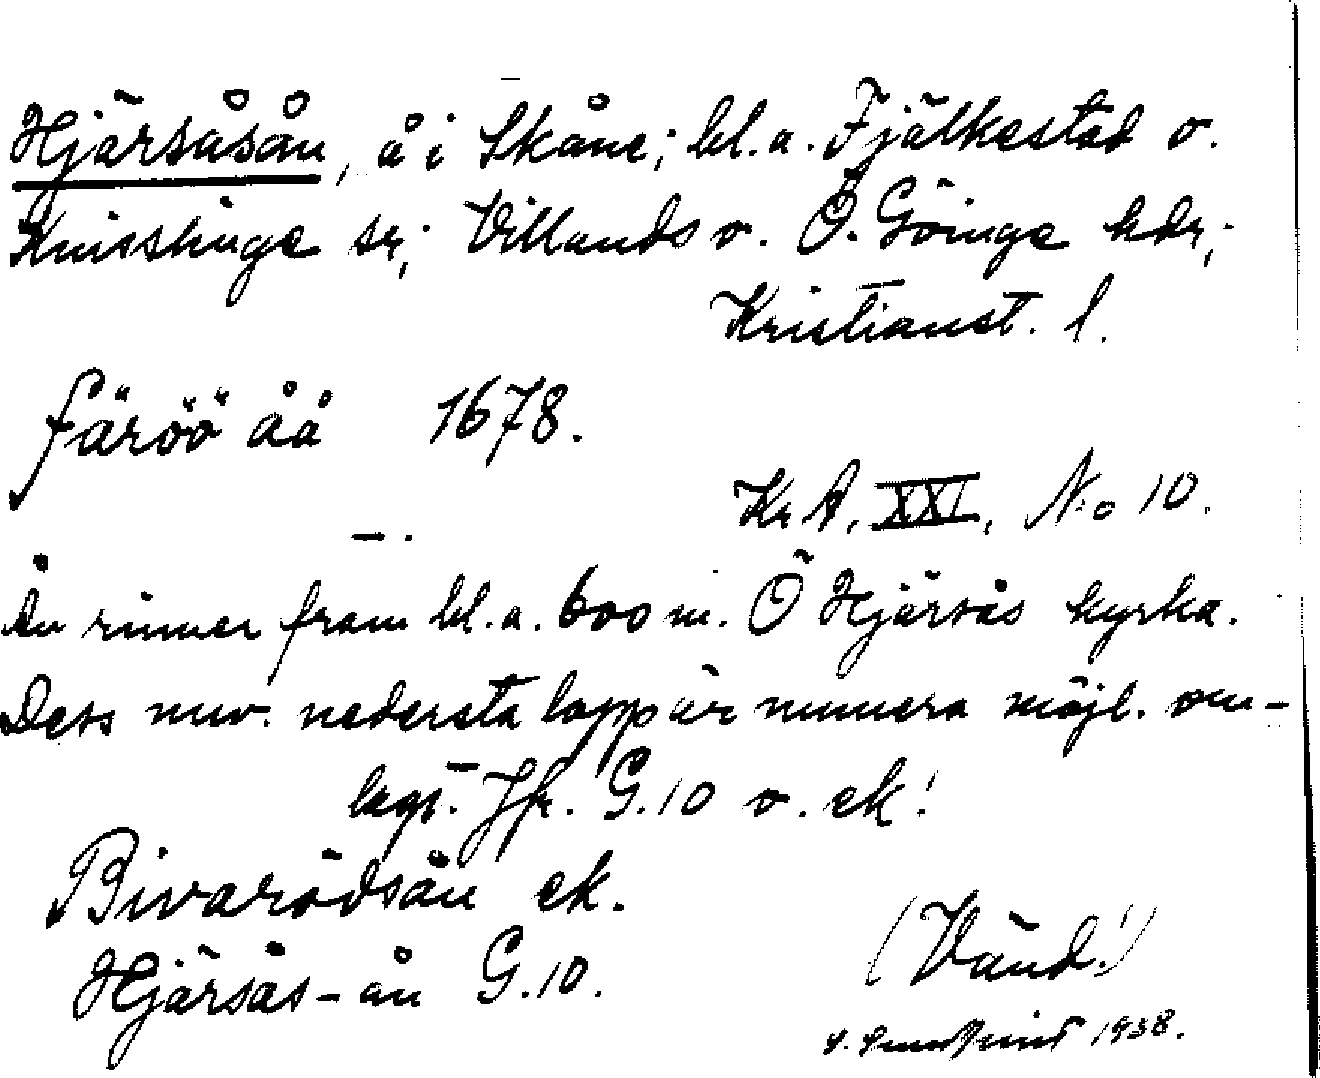 Hjärsåsån, å i Skåne; bl.a. Fjälkestad o.
Knisslinge sr; Villands o. Ö. Göinge hdr;
Kristianst. l.
färöö åå 1678.
Kr A, XXI, No 10.
—.
Ån rinner fram bl.a. 600 m. Ö Hjärsås kyrka.
Dess nuv. nedersta lopp är numera möjl. om-
lagt. Jfr. G. 10 o. ek!
Bivarödsån ek.
Hjärsås-ån G. 10.
(Vänd!)
1938.